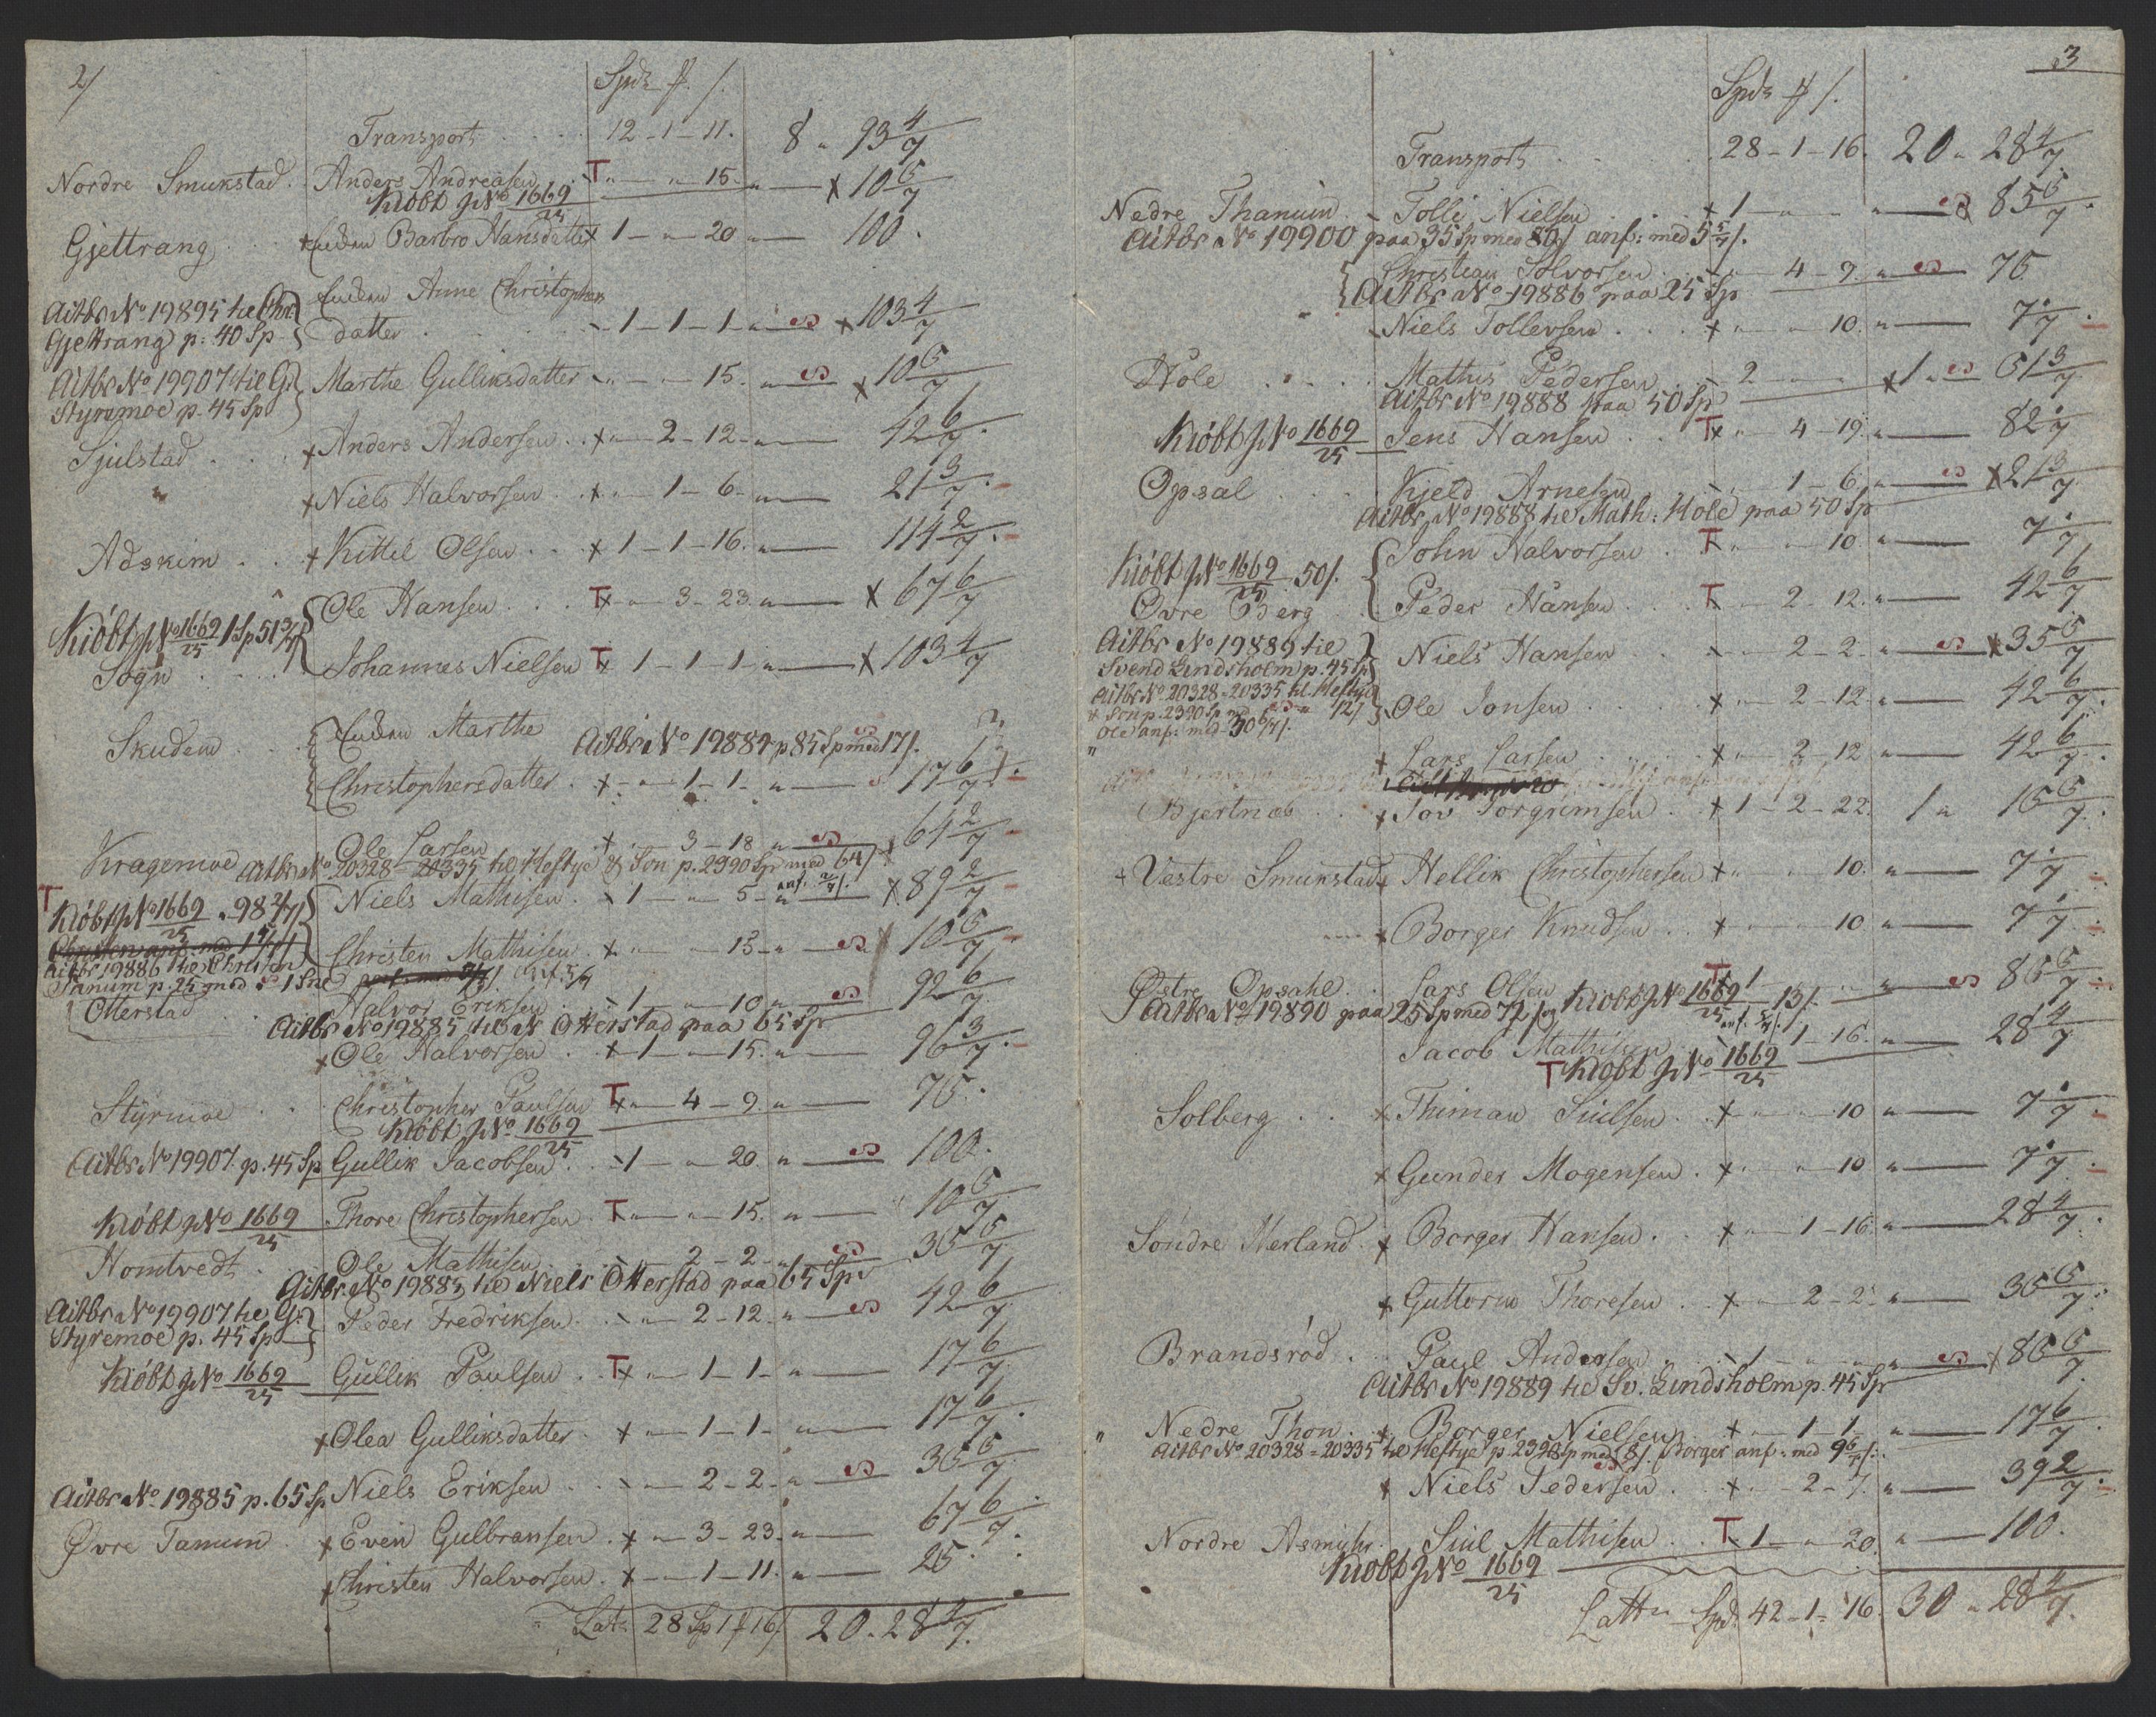 2/
Spdr ℔. /.
Transport . . . . 12 - 1 - 11. 8 " 93 4/7
Nordre Smukstad. Anders Andreasen T " — " 15. " — x 10 5/7
Kiöbt No 1669/25
Gjettrang . . . Enken Barbro Hansdatter x 1 — " 20 " — 100.
Enken Anne Christophers
Aitbr No 19895 til Chr.
datter . . . . 1 - 1 - 1 - " — x 103 4/7
Gjettrang p: 40 Sp
Aitbr No 19907 til G. Marthe Gulliksdatter " — " 15. " — x 10 5/7
Styremoe p. 45 Sp
Sjulstad . . . x Anders Andersen . . x " — 2 - 12. " — 42 6/7
" x Niels Halvorsen . . x " — 1 - 6 - " — 21 3/7
Adskim . . x Kittil Olsen . . x 1 - 1 - 16. " — 114 2/7
Ole Hansen . . . T x " — 3 - 23 " — x 67 6/7
Kiöbt No 1669/25 1 Sp 51 3/7
Sogn . . . . Johannes Nielsen T x 1 - 1 - 1 - " — x 103 4/7
Skuden . . . Enken Marthe Aitbr No 19884 p 85 Sp med 17 /.
Christophersdatter . x - " — 1 - 1 - " — 17 6/7
Ole Larsen . . . x . — 3 - 18 " — x 64 2/7
Kragemoe Aitbr No 20328 - 20335 til Heftye & Søn p. 2390 Sp med 64 /
anf. 2/7 /.
T Kiöbt No 1669/25 " 98 2/7 / Niels Mathisen . x 1 — " 5 - " — x 89 2/7
Christen anf. med 1 5/7 / Christen Mathisen . x " — " 15 - " — x 10 5/7
Aitbr 19886 til Christen
Tanum p. 25 med
Otterstad . . Halvor Eriksen . . 1 — " 10 " — 92 6/7
Aitbr No 19885 til N Otterstad paa 65 Sp
x Ole Halvorsen . x 1 — " 15. " — 96 3/7
Styrmoe . . . Christopher Paulsen T x " — 4 - 9. " — 75.
Kiöbt No 1669/25
Aitbr No 19907. p. 45 Sp Gullik Jacobsen . . 1 — " 20. " — 100.
Kiöbt No 1669/25 Thore Christophersen . T " — " 15. " — 10 5/7
Homtvedt . . Ole Mathisen . . . — 2 - 2 - " — 35 5/7
Aitbr No 19885 til Niels Otterstad paa 65 Sp
Aitbr No 19907 til G. Peder Fredriksen . . " — 2 - 12. " — 42 6/7
Styremoe p. 45 Sp
Kiöbt No 1669/25 Gullik Paulsen . . T x " — 1 - 1 - " — 17 6/7
x Olea Gulliksdatter . x " — 1 - 1 - " — 17 6/7
Aitbr No 19885 p. 65 Sp Niels Eriksen . . " — 2 - 2 - " — 35 5/7
Øvre Tanum . x Even Gulbransen . x " — 3 - 23. " — 67 6/7
x Christen Halvorsen . x " — 1 - 11. " — 25.
Lat. 28 Sp 1 ℔ 16 / 20 . 28 4/7
3
Spdr ℔ /.
Transport . . . 28 - 1 - 16. 20 " 28 4/7
Nedre Thanum . Tolle Nielsen . . . x 1 — " — " — 85 5/7
Aitbr No 19900 paa 35 Sp med 80 / anf: med 5 5/7 /.
Christian Solvorsen . . " 4 - 9. " — 75
Aitbr No 19886 paa 25 Sp
Niels Tollevsen . . . x " — " 10. " — 7 1/7
Hole . . . . Mathis Pedersen . . . 2 — " — x 1 " 51 3/7
Aitbr No 19888 paa 50 Sp
Kiöbt No 1669/25 Jens Hansen . . Tx " 4 - 19. " — 82 1/7
Opsal . . . Kjeld Arnesen . . " 1 - 6. " — x 21 3/7
Aitbr No 19888 til Math: Hole paa 50 Sp
John Halvorsen . T " — " 10 " — 7 1/7
Kiöbt No 1669/25 50 /.
Øvre Berg . Peder Hansen . . . T " — 2 - 12. " — 42 6/7
Aitbr No 19889 til Niels Hansen . . . " — 2 - 2. " — x 35 5/7
Svend Lindsholm p. 45 Sp
Aitbr No 20328 - 20335 til Heftye
& Søn p. 2390 Sp med 12 / Ole Jonsen . . . x " — 2 - 12. " — 42 6/7
Ole anf: med 30 6/7 /.
" x Lars Larsen . . . . x " — 2 - 12 " — 42 6/7
Bjertnæs . . x Jov Torgrimsen . . x 1 - 2 - 22. 1 " 15 5/7
x Væstre Smukstad x Hellik Christophersen x " — " 10. " — 7 1/7
x Borger Knudsen . . x " — " 10 " — 7 1/7
Østre Opsahl . . Lars Olsen Kiöbt No 1669/25 13 /. T x 1 — " — 85 5/7
Aitbr No 19890 paa 25 Sp med 72 / og anf. 5/7 /.
Jacob Mathisen . . " 1 - 16. " — 28 4/7
T Kiöbt No 1669/25
Solberg . . x Thiman Siulsen . . x " — " 10 " — 7 1/7
x Gunder Mogensen . x " — " 10 " — 7 1/7
Söndre Nerland . x Borger Hansen . . x " — 1 - 16. " — 28 4/7
x Guttorm Thoresen . . x " — 2 - 2. " — 35 5/7
Brandsröd . Paul Andersen . . . 1 — " — " — x 85 5/7
Aitbr No 19889 til Sv. Lindsholm p. 45 Sp
" Nedre Thon . x Borger Nielsen . . x " 1 - 1 " — 17 6/7
Aitbr No 20328 - 20335 til Heftye p. 2390 Sp med 8 /. Borger anf: med 9 6/7 /.
x Niels Pedersen . . x " — 2 - 7. " — 39 2/7
Nordre Asmyhr . Siul Mathisen . . T 1 — " 20. " — 100.
Kiöbt No 1669/25
Latt. Spd. 42 - 1 - 16. 30 " 28 4/7